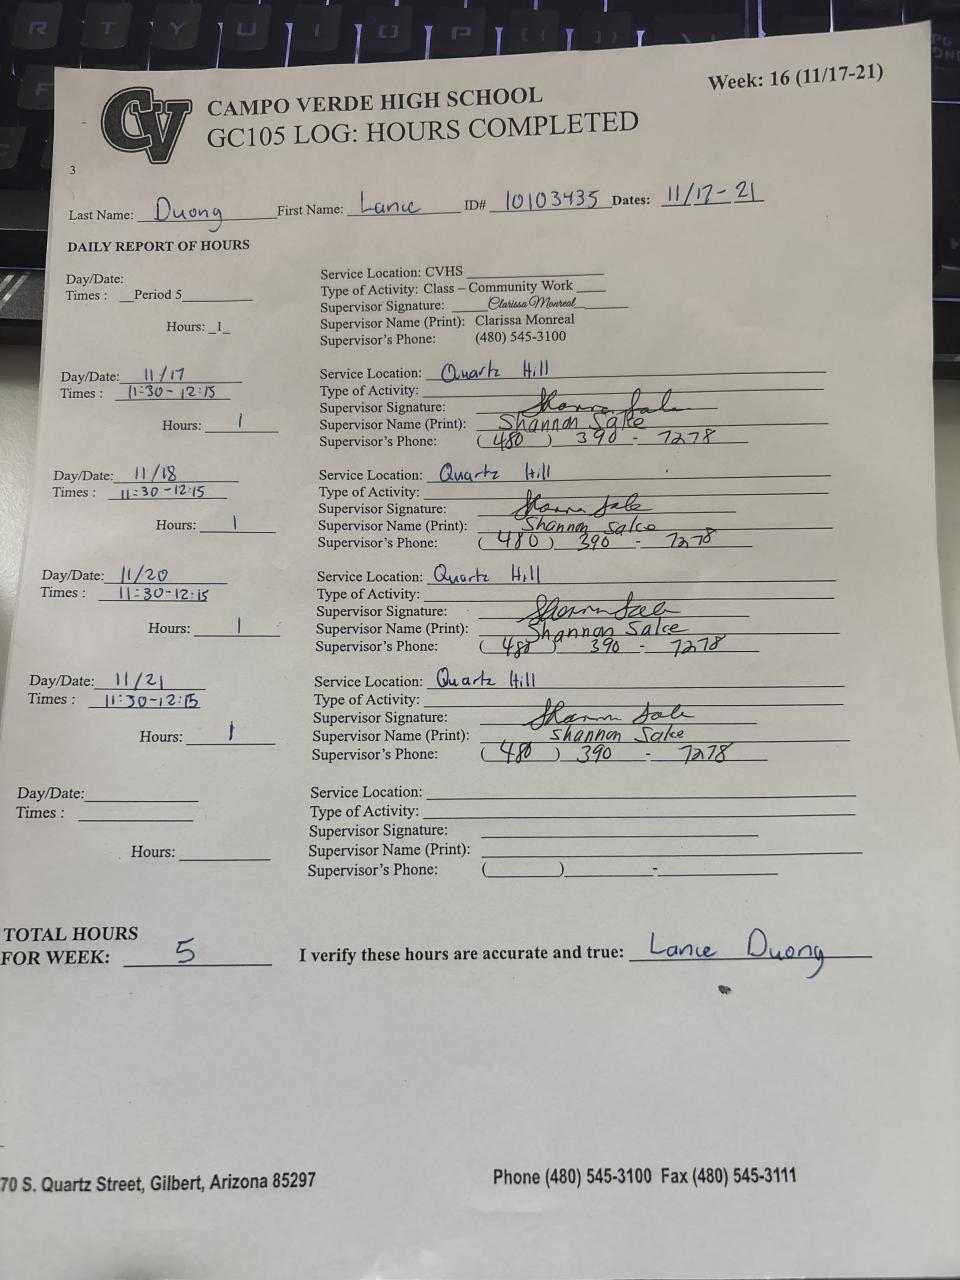 Week: 16 (11/17-21)
CV
CAMPO VERDE HIGH SCHOOL
GC105 LOG: HOURS COMPLETED
3
Last Name: Duong First Name: Lance ID# 10103435 Dates: 11/17-21
DAILY REPORT OF HOURS
Day/Date:
Times : Period 5
Hours: 1
Service Location: CVHS
Type of Activity: Class – Community Work
Supervisor Signature: Clarissa Monreal
Supervisor Name (Print): Clarissa Monreal
Supervisor's Phone: (480) 545-3100
Day/Date: 11/17
Times : 11:30-12:15
Hours: 1
Service Location: Quartz Hill
Type of Activity:
Supervisor Signature:
Supervisor Name (Print): Shannon
Supervisor's Phone: (480) 390-7278
Day/Date: 11/18
Times : 11:30-12:15
Hours: 1
Service Location: Quartz Hill
Type of Activity:
Supervisor Signature:
Supervisor Name (Print): Shannon
Supervisor's Phone: (480) 390-7278
Day/Date: 11/20
Times : 11:30-12:15
Hours: 1
Service Location: Quartz Hill
Type of Activity:
Supervisor Signature:
Supervisor Name (Print): Shannon
Supervisor's Phone: (480) 390-7278
Day/Date: 11/21
Times : 11:30-12:15
Hours: 1
Service Location: Quartz Hill
Type of Activity:
Supervisor Signature:
Supervisor Name (Print): Shannon
Supervisor's Phone: (480) 390-7278
Day/Date:
Times :
Hours:
Service Location:
Type of Activity:
Supervisor Signature:
Supervisor Name (Print):
Supervisor's Phone: ( ) -
TOTAL HOURS
FOR WEEK: 5 I verify these hours are accurate and true: Lance Duong
70 S. Quartz Street, Gilbert, Arizona 85297 Phone (480) 545-3100 Fax (480) 545-3111